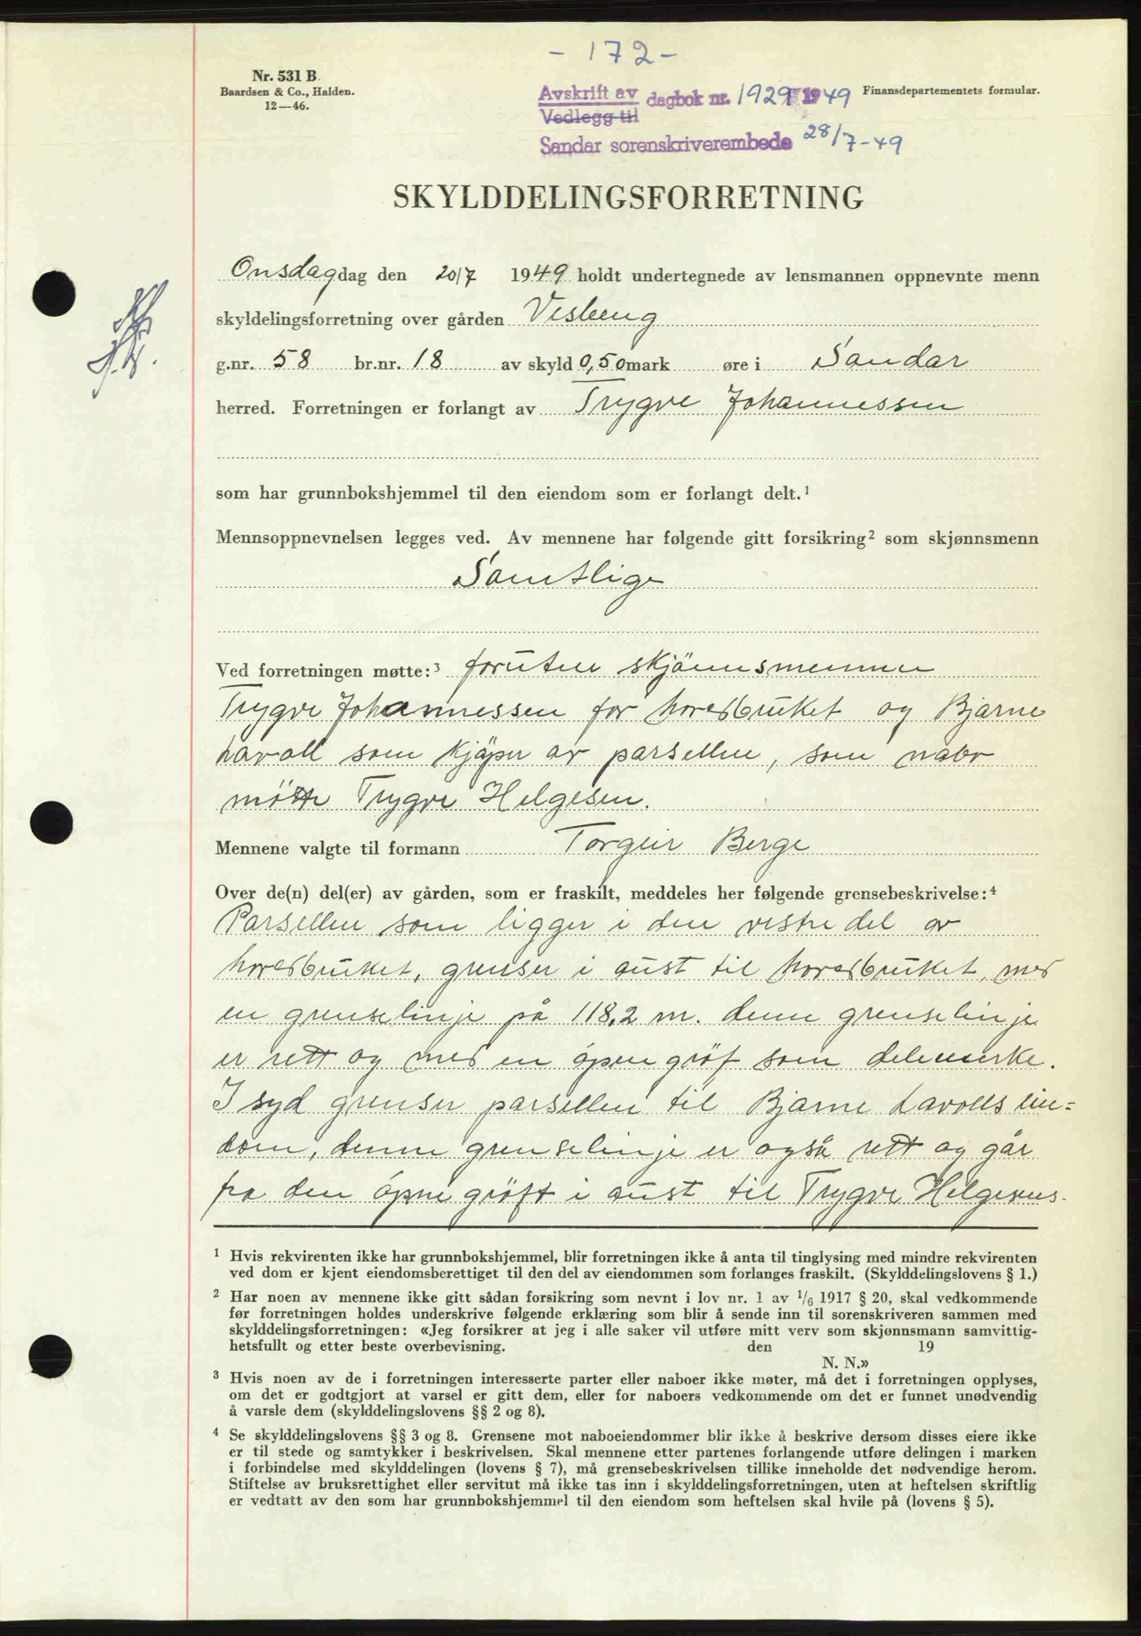 - 172 -
Nr. 531 B
Baardsen & Co., Halden.
12—46.
Avskrift av dagbok nr. 1929 1949 Finansdepartementets formular.
Vedlegg til
Sandar sorenskriverembede 28/7-49
SKYLDDELINGSFORRETNING
Onsdag dag den 20/7 1949 holdt undertegnede av lensmannen oppnevnte menn
skyldelingsforretning over gården Vesberg
g.nr. 58 br.nr. 18 av skyld 0,50 mark øre i Sandar
herred. Forretningen er forlangt av Trygve Johannessen
som har grunnbokshjemmel til den eiendom som er forlangt delt.¹
Mennsoppnevnelsen legges ved. Av mennene har følgende gitt forsikring² som skjønnsmenn
Samtlige
Ved forretningen møtte:³ foruten skjönnsmennene
Trygve Johannessen for hovedbruket og Bjarne
Lavoll som kjöper av parsellen, som nabo
mötte Trygve Helgesen.
Mennene valgte til formann Torgeir Berge
Over de(n) del(er) av gården, som er fraskilt, meddeles her følgende grensebeskrivelse:⁴
Parsellen som ligger i den vestre del av
hovedbruket, grenser i aust til hovedbruket, med
en grenselinje på 118,2 m. denne grenselinje
er rett og med en åpen gröf som delemerke.
I syd grenser parsellen til Bjarne Lavolls eien=
dom, denne grenselinje er også rett og går
fra den åpne gröft i aust til Trygve Helgesens
¹ Hvis rekvirenten ikke har grunnbokshjemmel, blir forretningen ikke å anta til tinglysing med mindre rekvirenten
ved dom er kjent eiendomsberettiget til den del av eiendommen som forlanges fraskilt. (Skylddelingslovens § 1.)
² Har noen av mennene ikke gitt sådan forsikring som nevnt i lov nr. 1 av 1/6 1917 § 20, skal vedkommende
før forretningen holdes underskrive følgende erklæring som blir å sende inn til sorenskriveren sammen med
skylddelingsforretningen: «Jeg forsikrer at jeg i alle saker vil utføre mitt verv som skjønnsmann samvittig-
hetsfullt og etter beste overbevisning. den 19
N. N.»
³ Hvis noen av de i forretningen interesserte parter eller naboer ikke møter, må det i forretningen opplyses,
om det er godtgjort at varsel er gitt dem, eller for naboers vedkommende om det er funnet unødvendig
å varsle dem (skylddelingslovens §§ 2 og 8).
⁴ Se skylddelingslovens §§ 3 og 8. Grensene mot naboeiendommer blir ikke å beskrive dersom disses eiere ikke
er til stede og samtykker i beskrivelsen. Skal mennene etter partenes forlangende utføre delingen i marken
i forbindelse med skylddelingen (lovens § 7), må grensebeskrivelsen tillike inneholde det nødvendige herom.
Stiftelse av bruksrettighet eller servitut må ikke tas inn i skylddelingsforretningen, uten at heftelsen skriftlig
er vedtatt av den som har grunnbokshjemmel til den eiendom som heftelsen skal hvile på (lovens § 5).